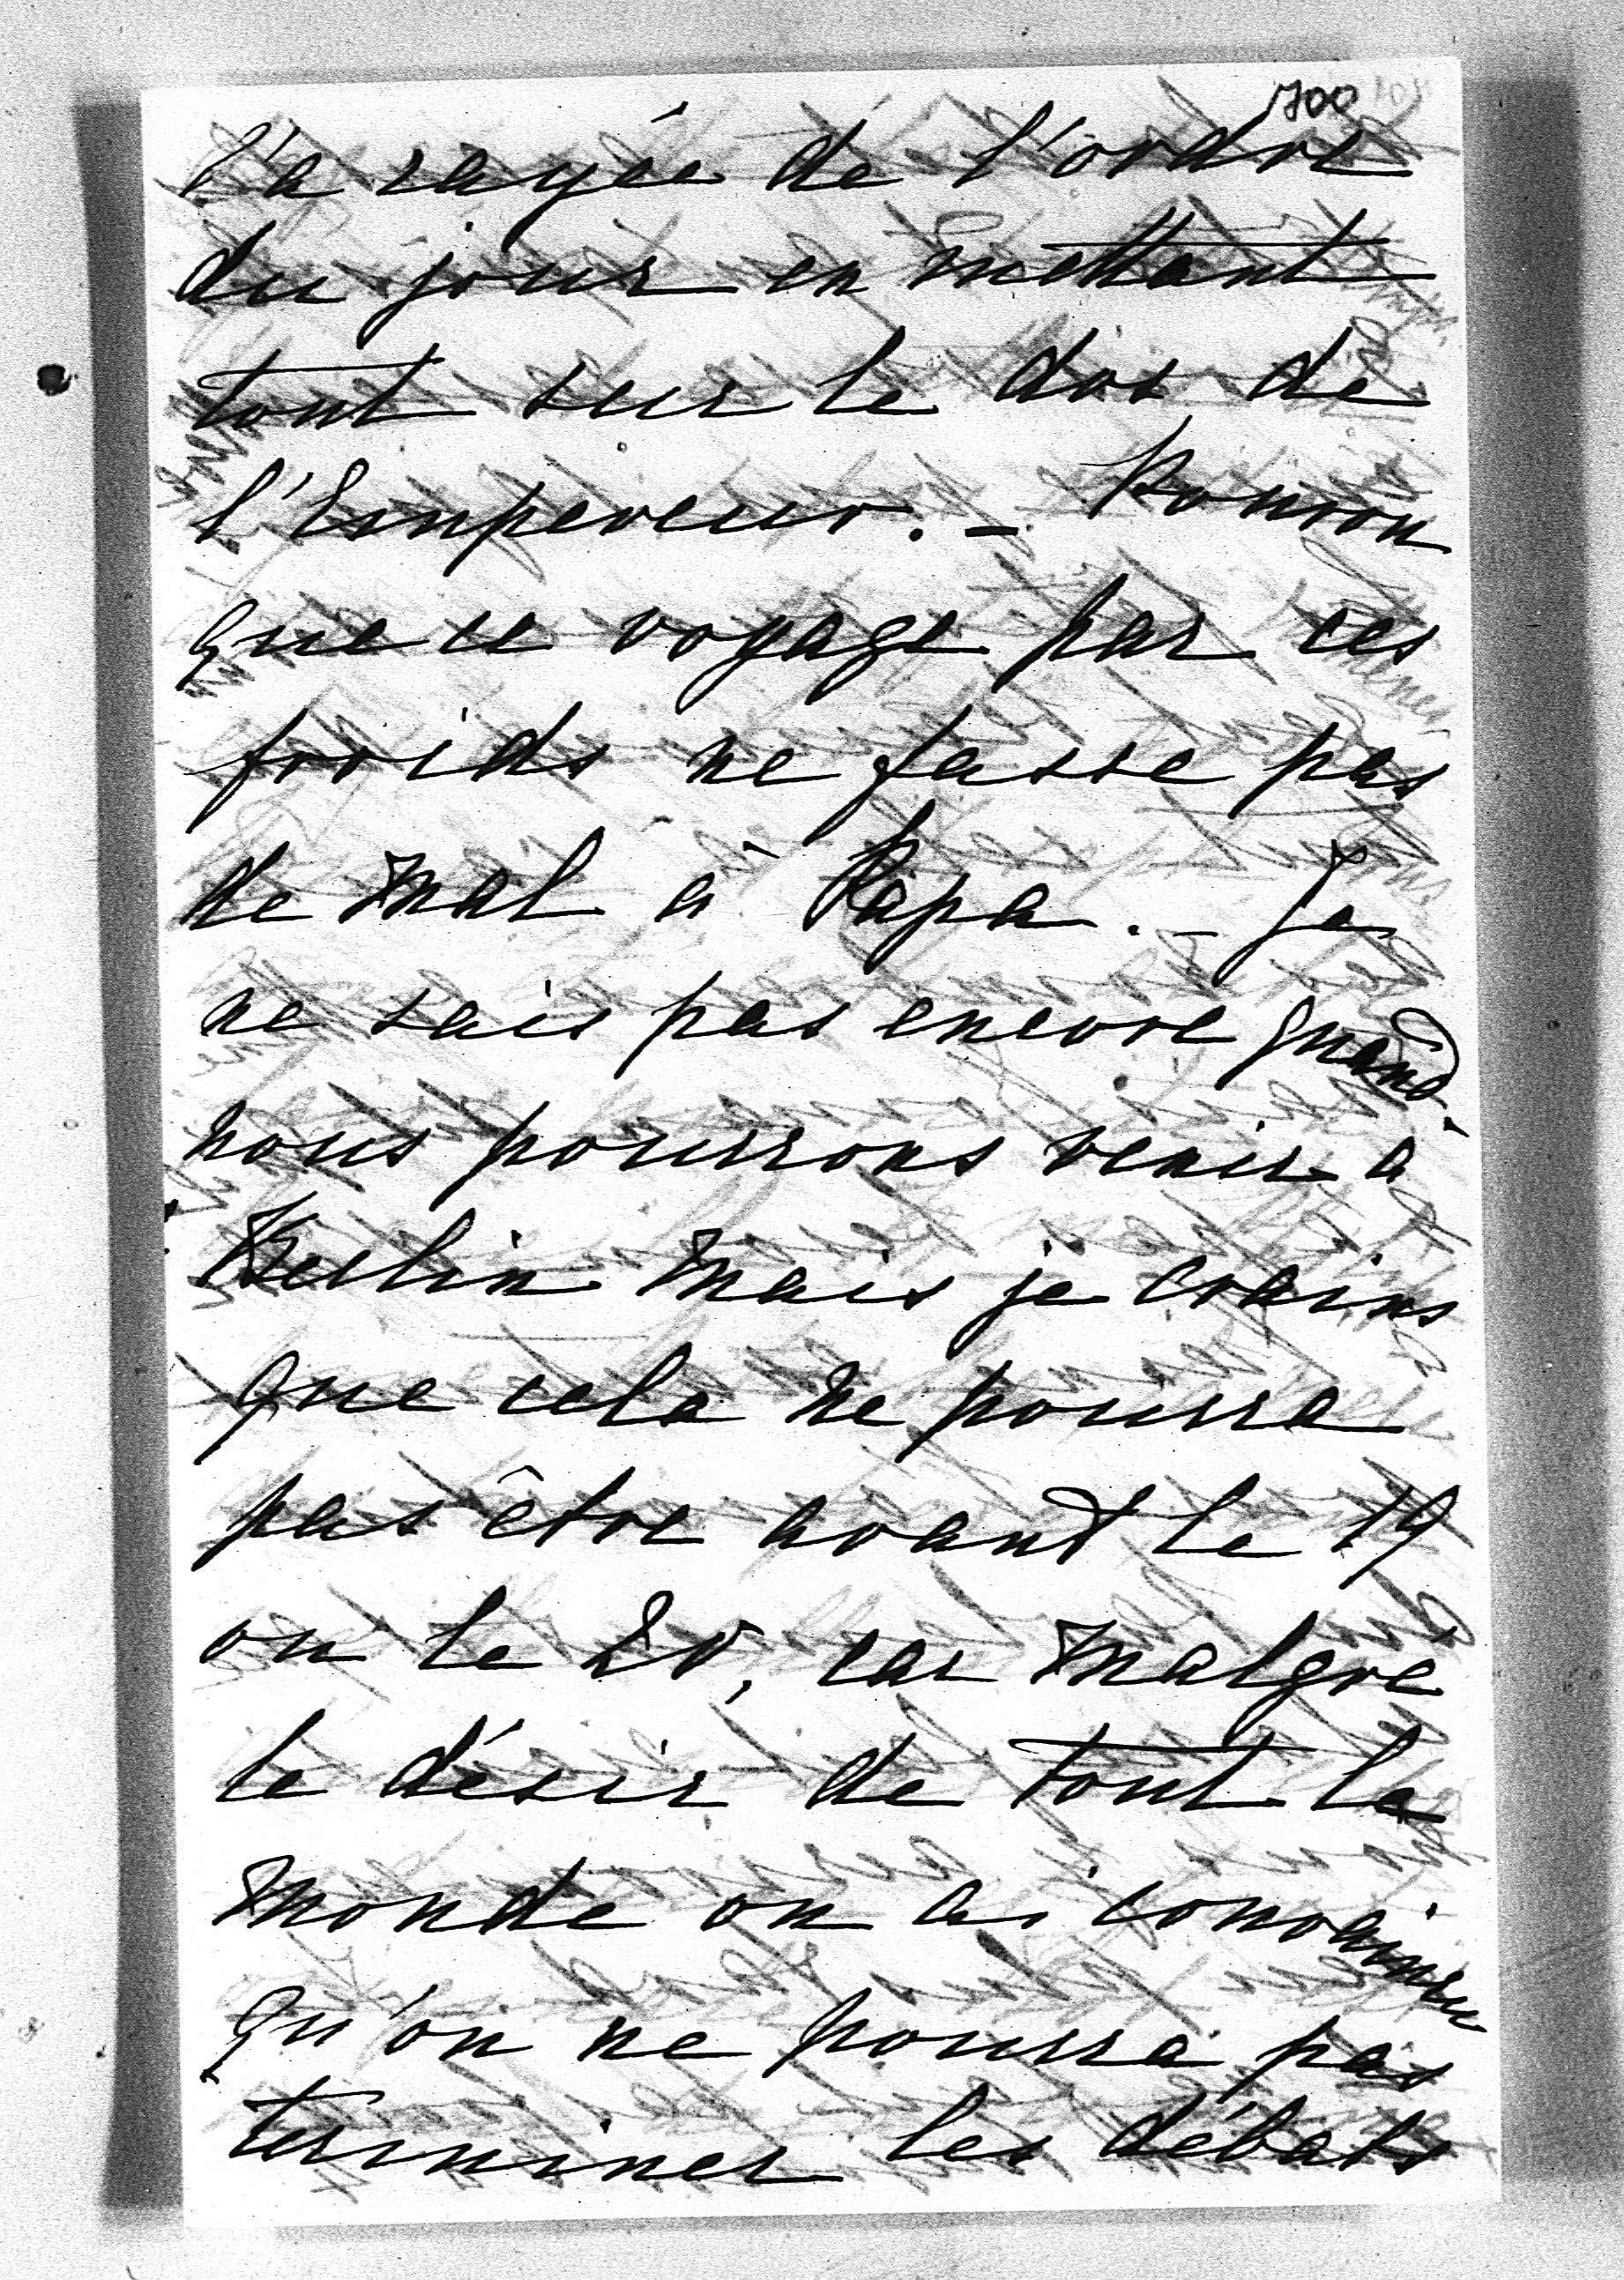 700
l'a rayée de l'ordre
du jour en mettant
tout sur le dos de
l'Empereur. – Pourvu
que ce voyage par ces
froids ne fasse pas
de mal à Papa. – Je
ne sais pas encore quand
nous pourrons venir à
Berlin mais je crains
que cela ne pourra
pas être avant le 19
ou le 20, car malgré
le désir de tout le
monde on a convaincu
qu'on ne pourra pas
terminer les débats